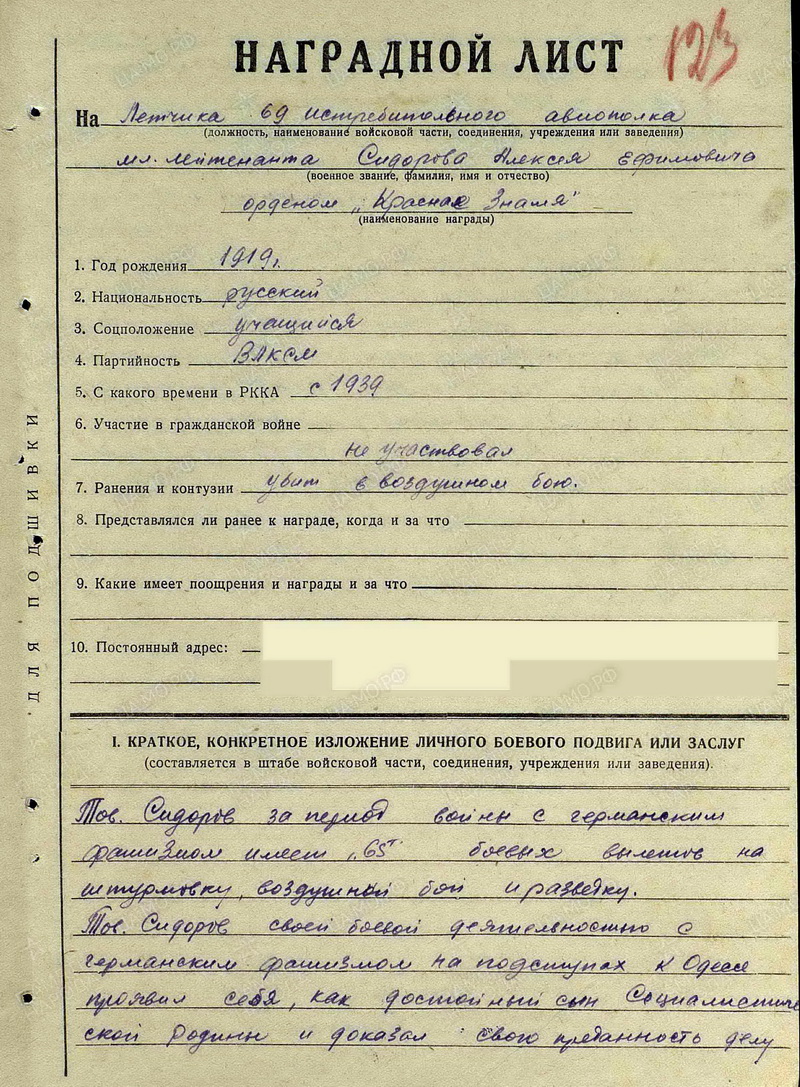 НАГРАДНОЙ ЛИСТ
123
На Летчика 69 истребительного авиополка
(должность, наименование войсковой части, соединения, учреждения или заведения)
мл. лейтенанта Сидорова Алексея Ефимовича
(военное звание, фамилия, имя и отчество)
орденом „Красное Знамя"
(наименование награды)
1. Год рождения 1919г.
2. Национальность русский
3. Соцположение учащийся
4. Партийность ВЛКСМ
5. С какого времени в РККА с 1939
6. Участие в гражданской войне
не участвовал
7. Ранения и контузии убит в воздушном бою.
8. Представлялся ли ранее к награде, когда и за что
9. Какие имеет поощрения и награды и за что
10. Постоянный адрес:
I. КРАТКОЕ, КОНКРЕТНОЕ ИЗЛОЖЕНИЕ ЛИЧНОГО БОЕВОГО ПОДВИГА ИЛИ ЗАСЛУГ
(составляется в штабе войсковой части, соединения, учреждения или заведения).
Тов. Сидоров за период войны с германским
фашизмом имеет „65" боевых вылетов на
штурмовку, воздушный бой и разведку.
Тов. Сидоров своей боевой деятельностью с
германским фашизмом на подступах к Одессе
проявил себя, как достойный сын Социалистиче
ской Родины и доказал свою преданность делу
ДЛЯ ПОДШИВКИ
ЦАМО.РФ